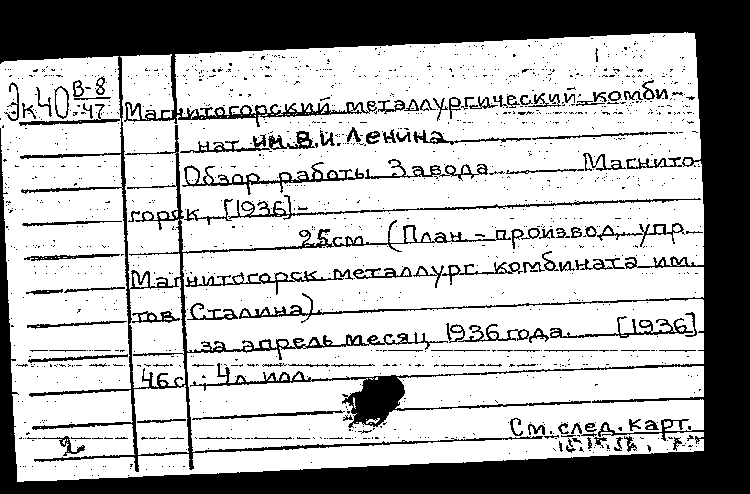 Эк40 В-8/47 Магнитогорский металлургический комби-
нат им. В.И. Ленина.
Обзор работы Завода Магнито-
горск, [1936]-
25см. (План-производ. упр.
Магнитогорск. металлург. комбината им.
тов. Сталина).
за апрель месяц 1936 года. [1936]
46 с.; 4 л. илл.
См. след. карт.
2.